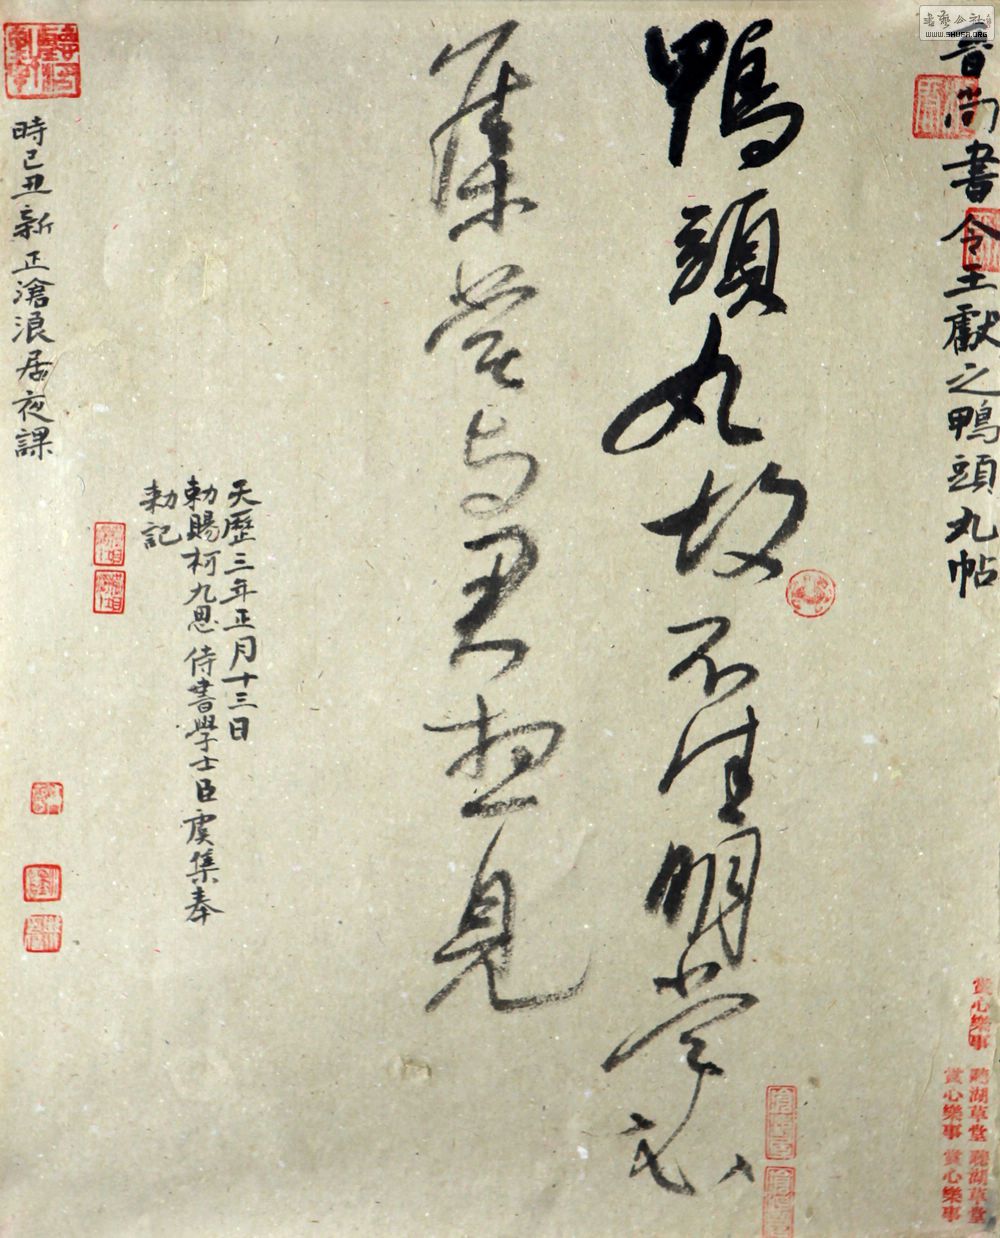 晉尚書令王獻之鴨頭丸帖
鴨頭丸故不佳明當必
集當與君相見
天歷三年正月十三日
勅賜柯九思侍書學士臣虞集奉
勅記
時己丑新正滄浪居夜課
賞心樂事
聽湖草堂
賞心樂事
聽湖草堂
賞心樂事
書藝公社
WWW.SHUFA.ORG